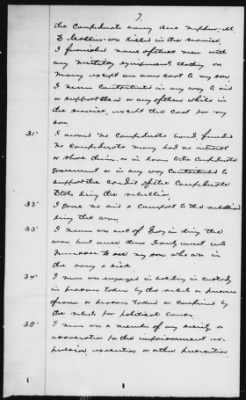 7
the Confederate army One nephew, W
D McAllin was killed in the service,
I furnished none of these men with
any military equipment clothing or
money except one over coat to my son,
I never contributed in any way to aid
or support them or any of them while in
the service, except the coat for my
son
31" I owned no Confederate bonds furnished
no Confederate money had no interest
or share therein, or in loan to the Confederate
government or in any way contributed to
support the credit of the Confederate
State during the rebellion
32" I gave no aid or comfort to the rebellion
during the war,
33" I never was out of during the
war but once then I only went into
Tennessee to see my son who was in
the army & sick
34" I never was engaged in holding in custody
in persons taken by the rebels as prisoners
of war or persons taken or confined by
the rebels for political causes,
35" I never was a member of any society or
association for the imprisonment ex-
pulsion, execution or other persecution